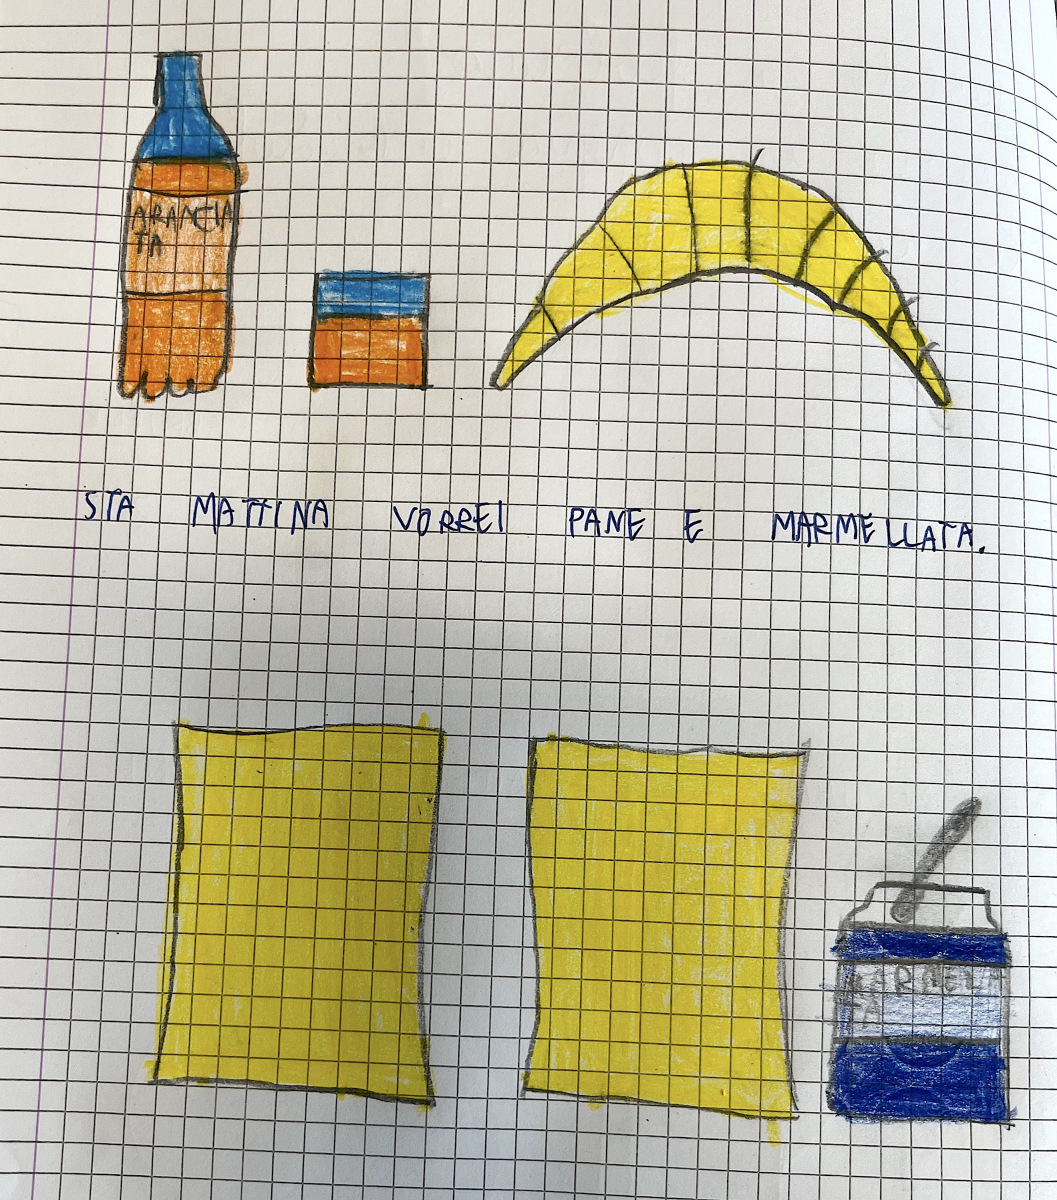 ARANCIA
TA
STA MATTINA VORREI PANE E MARMELLATA.
MARMELA
TA